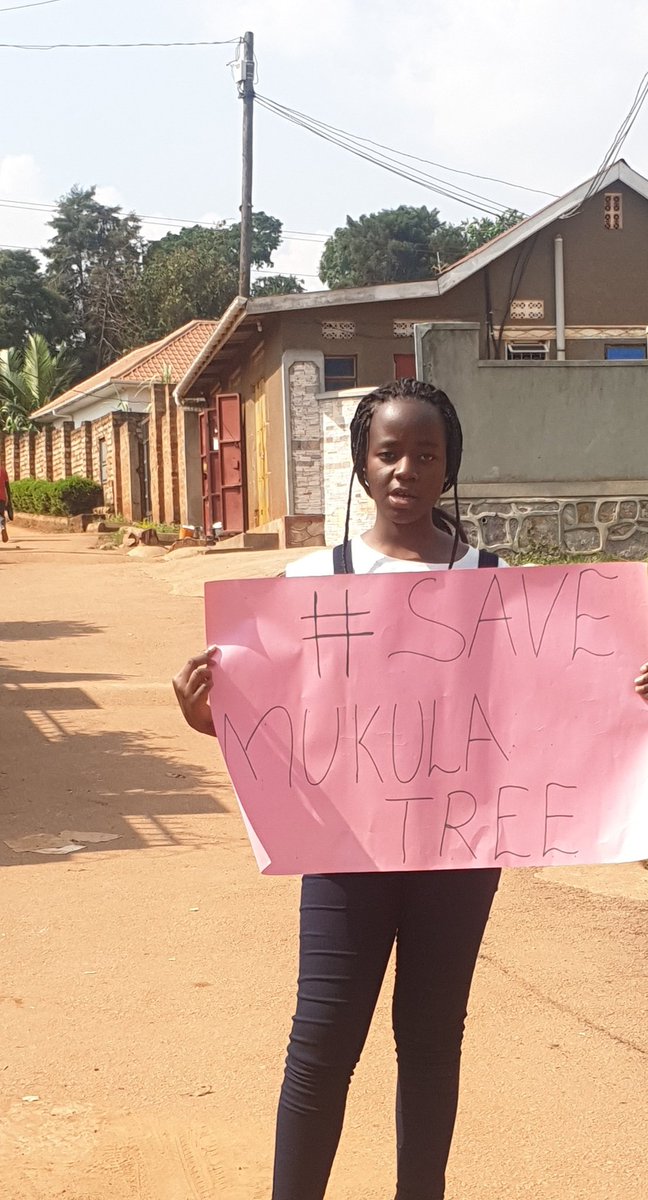 # SAVE
MUKULA
TREE